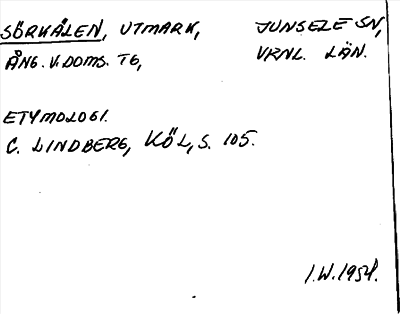 SÖRKÅLEN, UTMARK, JUNSELE SN,
ÅNG. V. DOMS. TG, VRNL. LÄN.
ETYMOLOGI.
C. LINDBERG, KÖL, S. 105.
I.W. 1954.